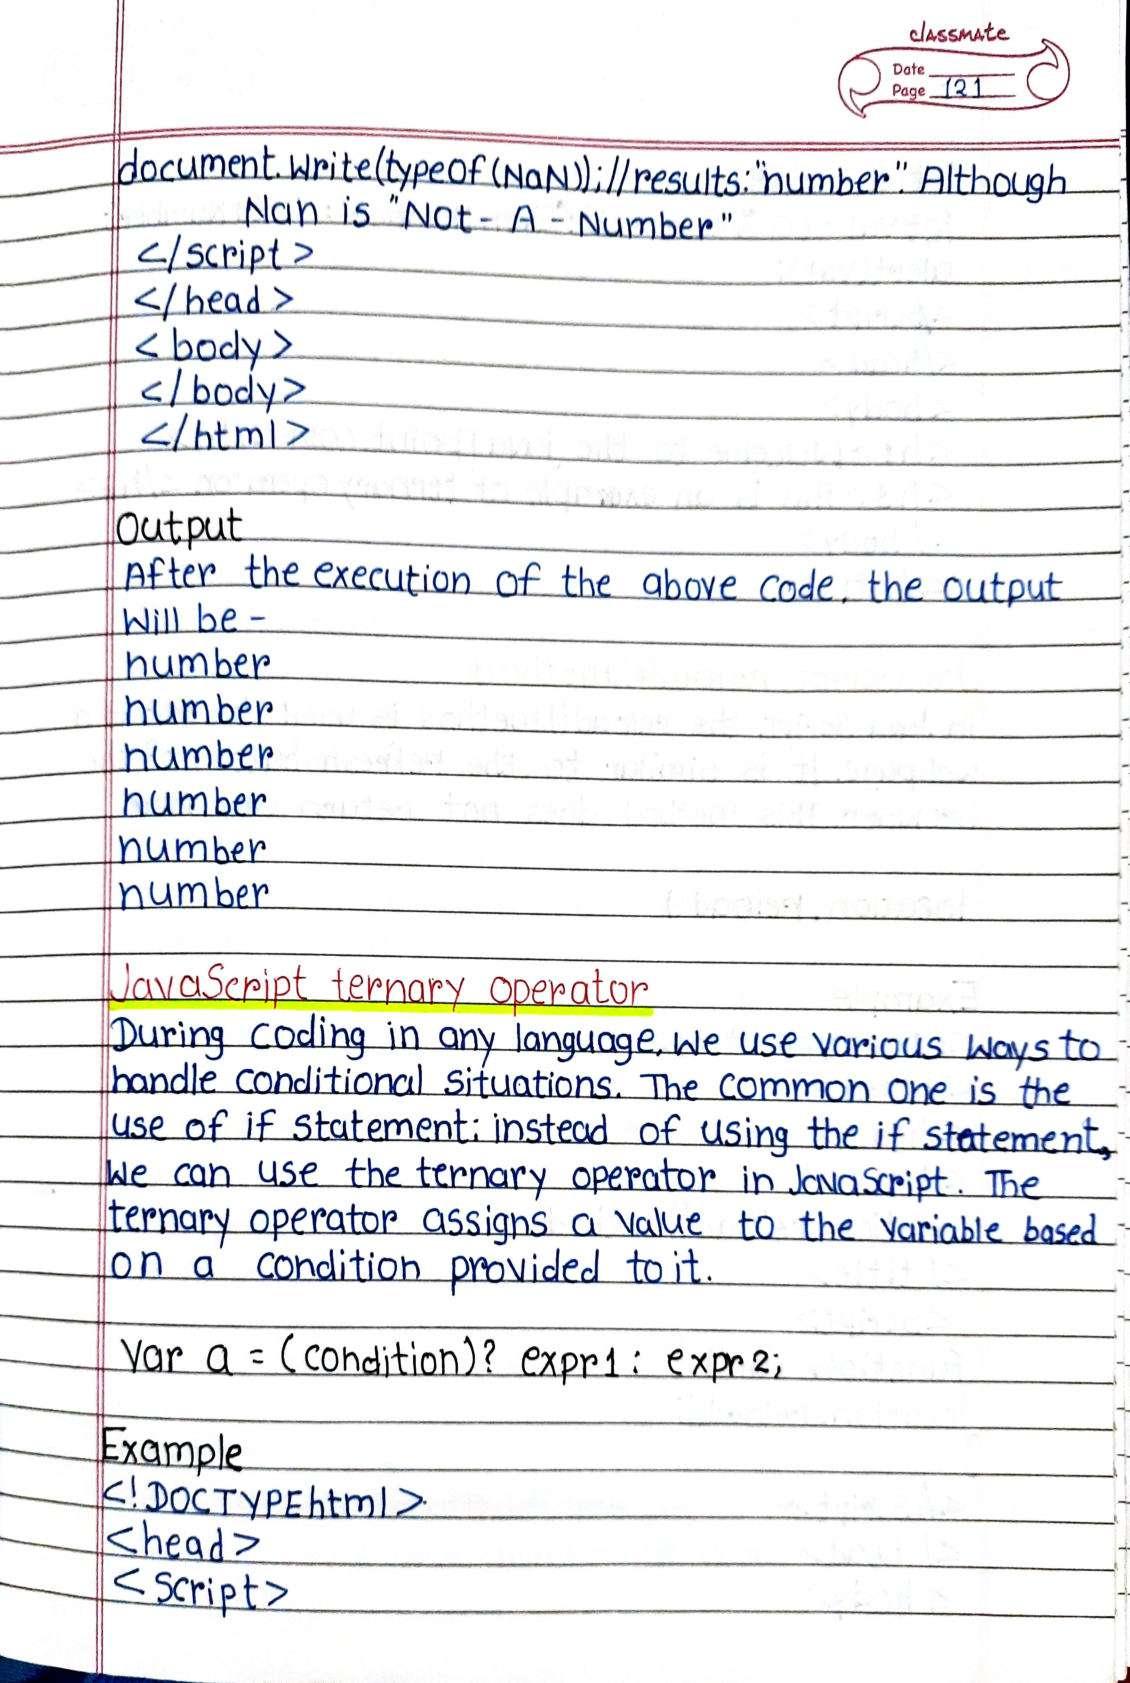 classmate
Date
Page 121
document.write(typeof(NaN));//results:"number". Although
Nan is "Not-A-Number"
</script>
</head>
<body>
</body>
</html>
Output
After the execution of the above code, the output
will be -
number
number
number
number
number
number
JavaScript ternary operator
During coding in any language, we use various ways to
handle conditional situations. The common one is the
use of if statement; instead of using the if statement,
we can use the ternary operator in JavaScript. The
ternary operator assigns a value to the variable based
on a condition provided to it.
Var a = (condition)? expr1 : expr2;
Example
<!DOCTYPEhtml>
<head>
<script>